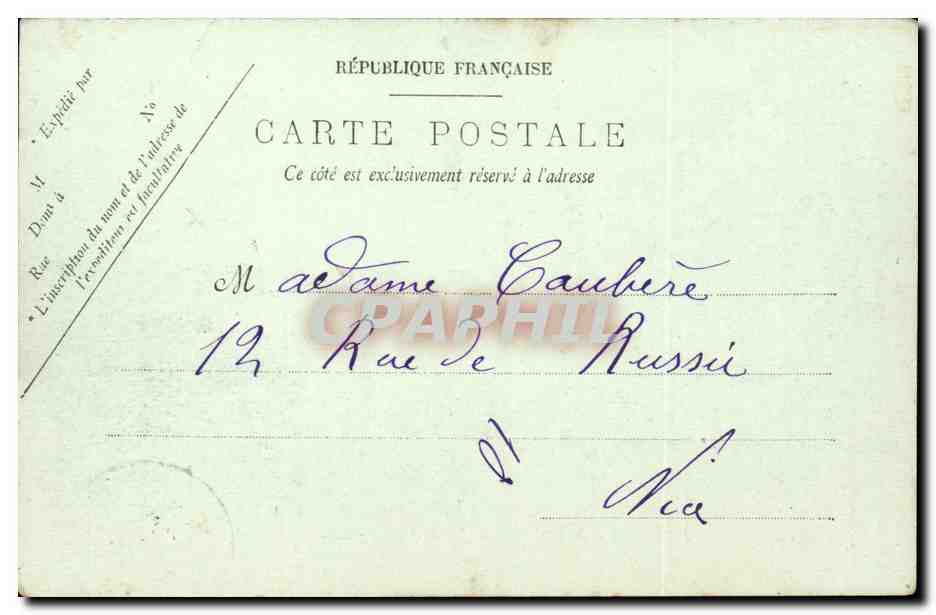 RÉPUBLIQUE FRANÇAISE
CARTE POSTALE
Ce côté est exclusivement réservé à l'adresse
* Expédié par
M
No
Demt à
Rue
* L'inscription du nom et de l'adresse de
l'expéditeur est facultative
Madame Caubère
12 Rue de Russie
à Nice
CPAPHIL